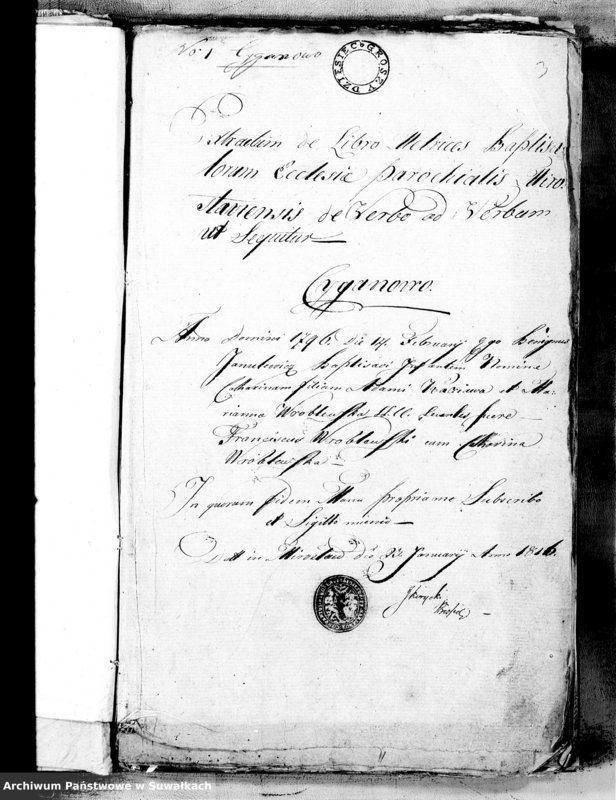 No. 1 Cyganowo
DZIESIĘC GROSZY
3
Extractum de Libro Metrices Baptisa-
torum Ecclesiæ parochialis Miro-
slaviensis de Verbo ad Verbum
ut Sequitur
Cyganowo.
Anno Domini 1796. Die 14. February Ego Benignus
Janulewicz Baptisavi Infantem Nomine
Catharinam filiam Adami et Ma-
rianna Wroblewska LL. CC. Levantes fuere
Franciscus Wroblewski cum Catharina
Wróblewska
In quorum fidem Manu propria me Subscribo
et Sigillo munio
Datt in Mirosław die 22 January Anno 1816.
Archiwum Państwowe w Suwałkach